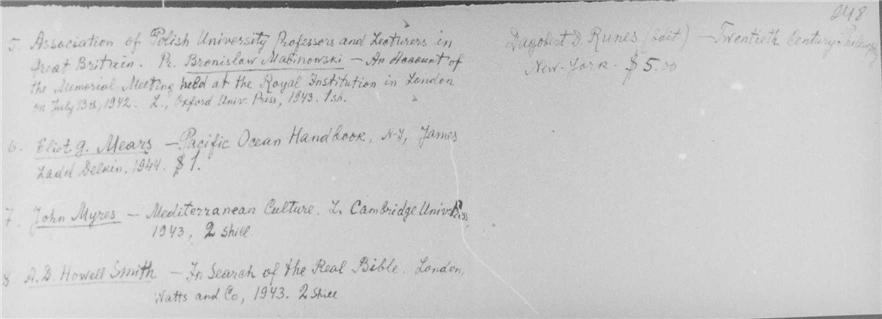 248
5. Association of Polish University Professors and Lecturers in
Great Britain. Pr. Bronislaw Malinowski — An Account of
the Memorial Meeting held at the Royal Institution in London
on July 13th, 1942. L., Oxford Univ. Press, 1943. 1 sh.
6. Eliot G. Mears — Pacific Ocean Handbook, N-Y, James
Ladd Delkin, 1944. $1.
7. John Myres — Mediterranean Culture. L. Cambridge Univ. Press,
1943, 2 shill
8. A. D. Howell Smith — In Search of the Real Bible. London,
Watts and Co, 1943. 2 shill
Dagobert D. Runes (edit) — Twentieth Century Philosophy
New-York. $5.00